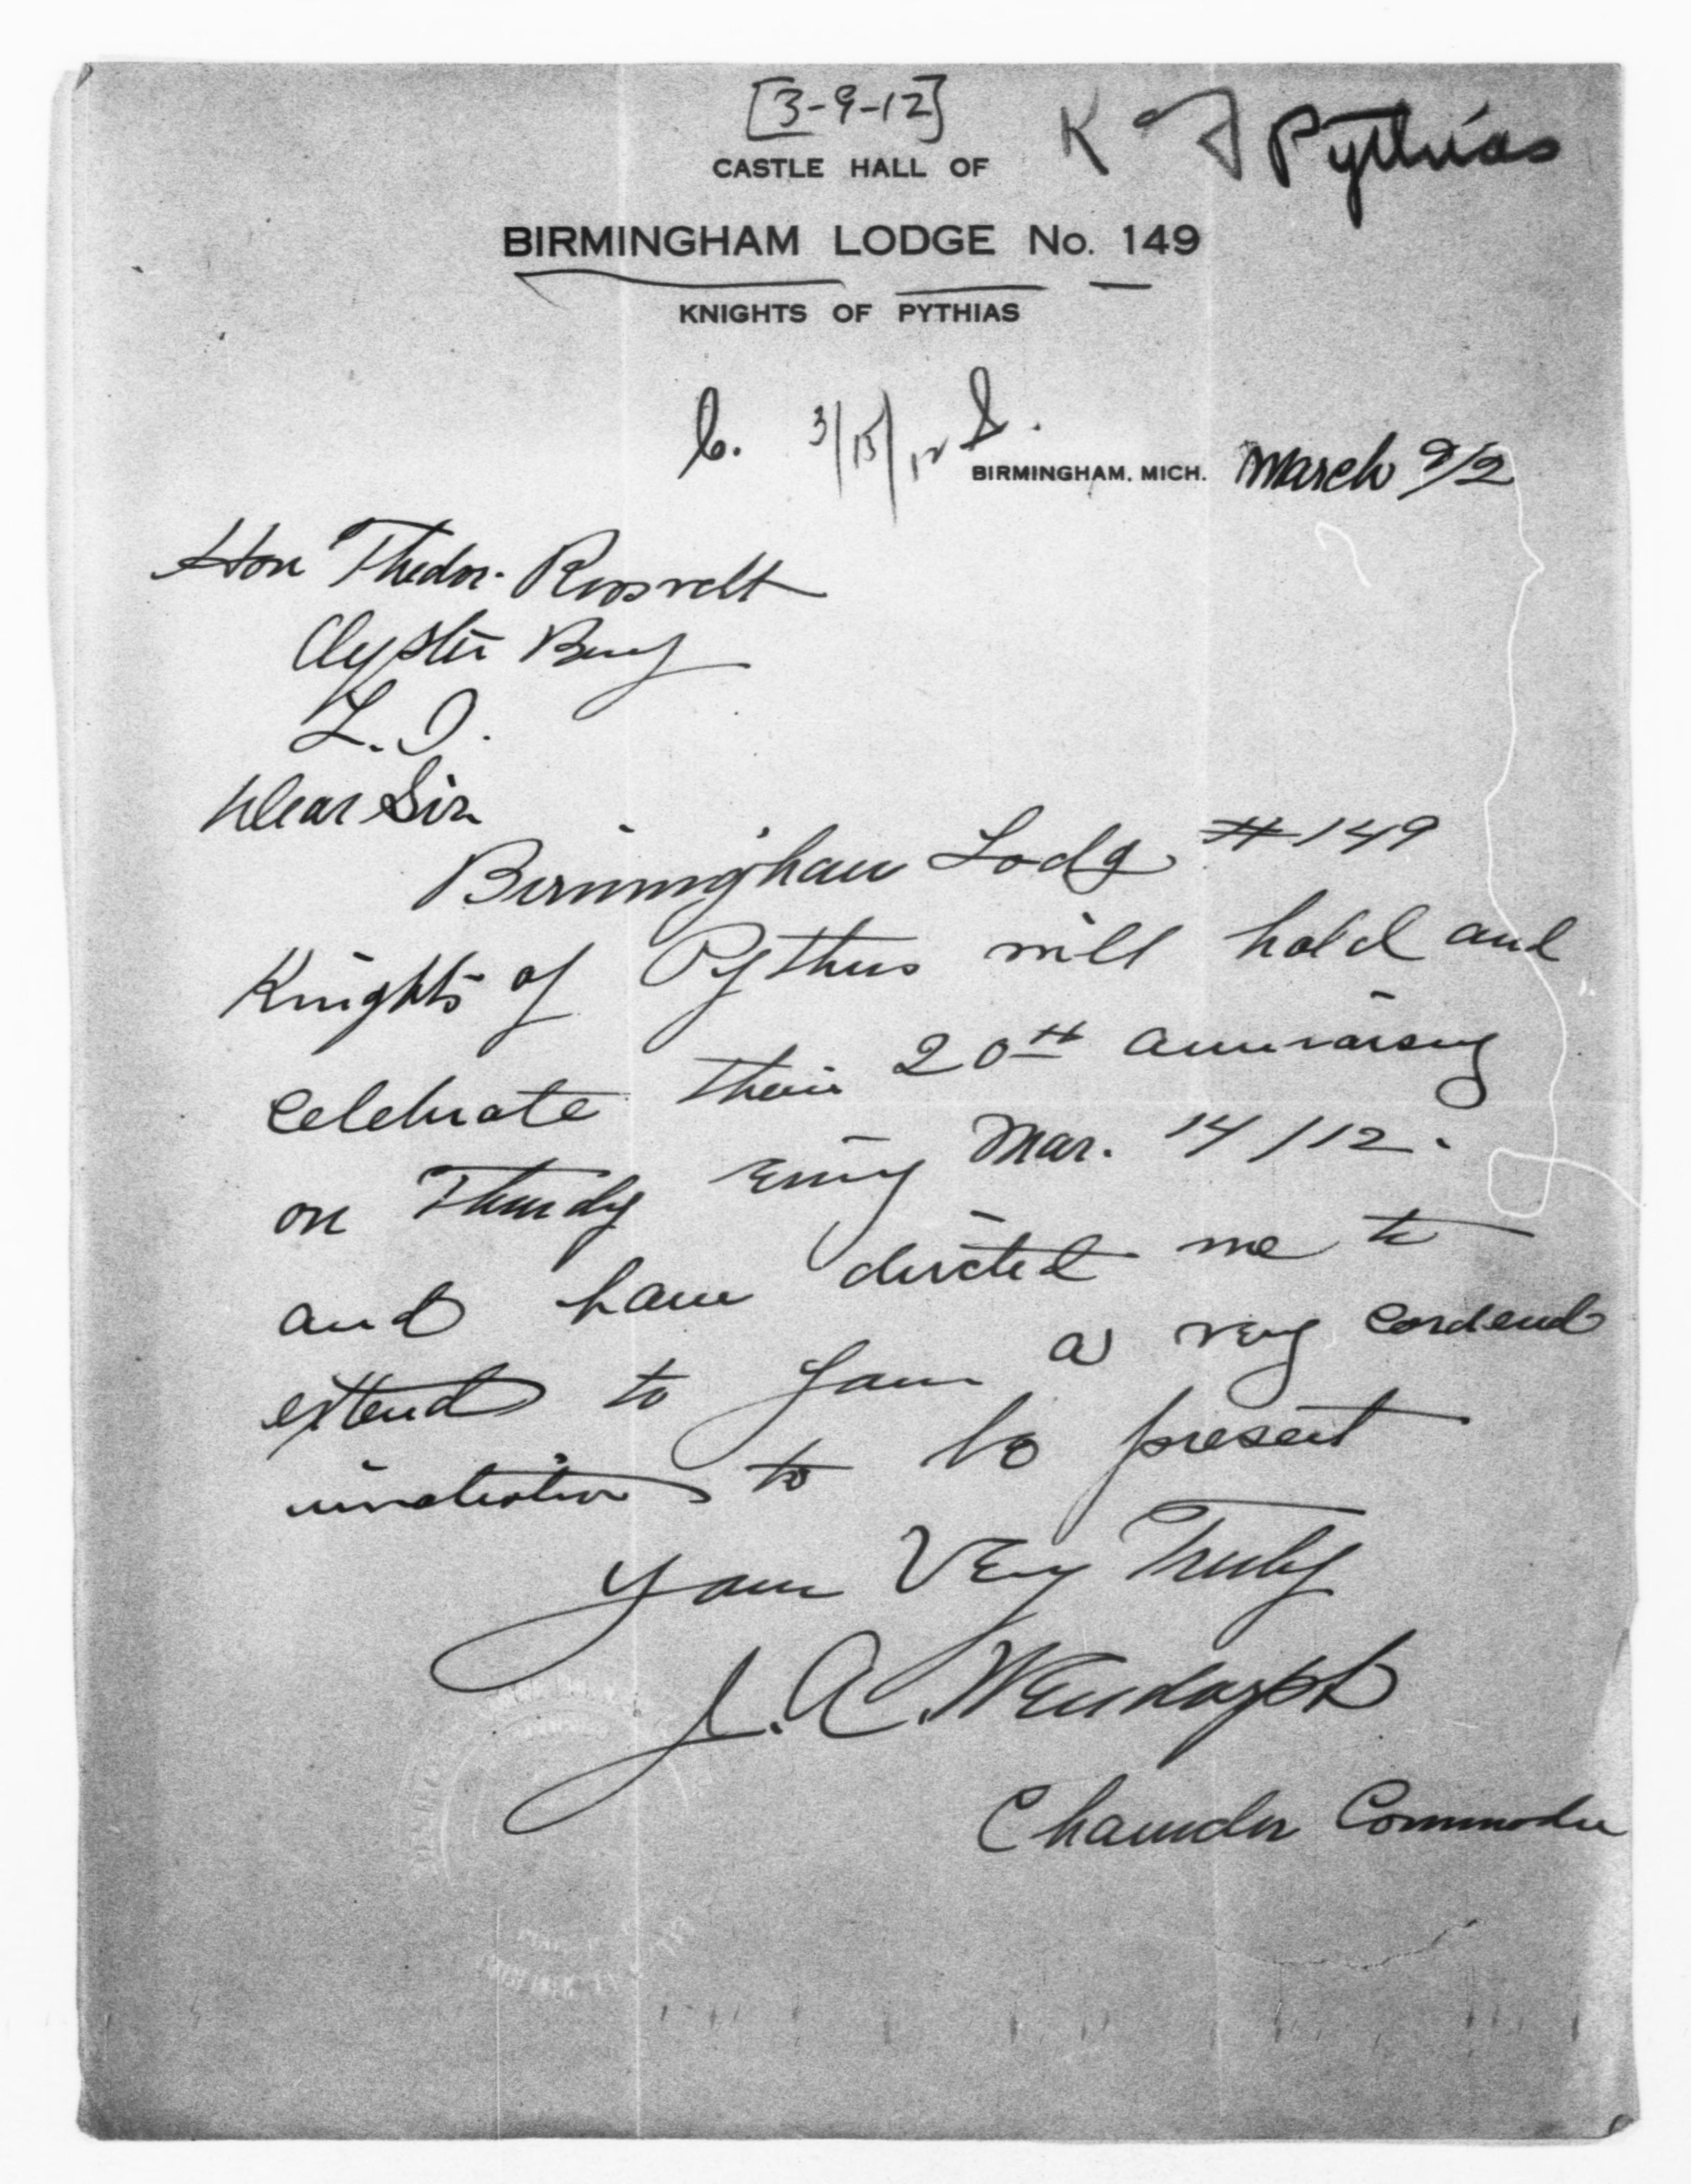 [3-9-12]
K of Pythias
CASTLE HALL OF
BIRMINGHAM LODGE No. 149
KNIGHTS OF PYTHIAS
3/15/12
BIRMINGHAM, MICH. March 9/12
Hon Theodor Roosvelt
Oyster Bay
L. I.
Dear Sir
Birmingham Lodg #149
Knights of Pythias will hold and
celebrate their 20th anniversary
on Thursdy Eving Mar. 14/12.
and have directed me to
extend to you a very cordeal
invatation to be present
Your Very Truly
J. A.
Chancelor Commander